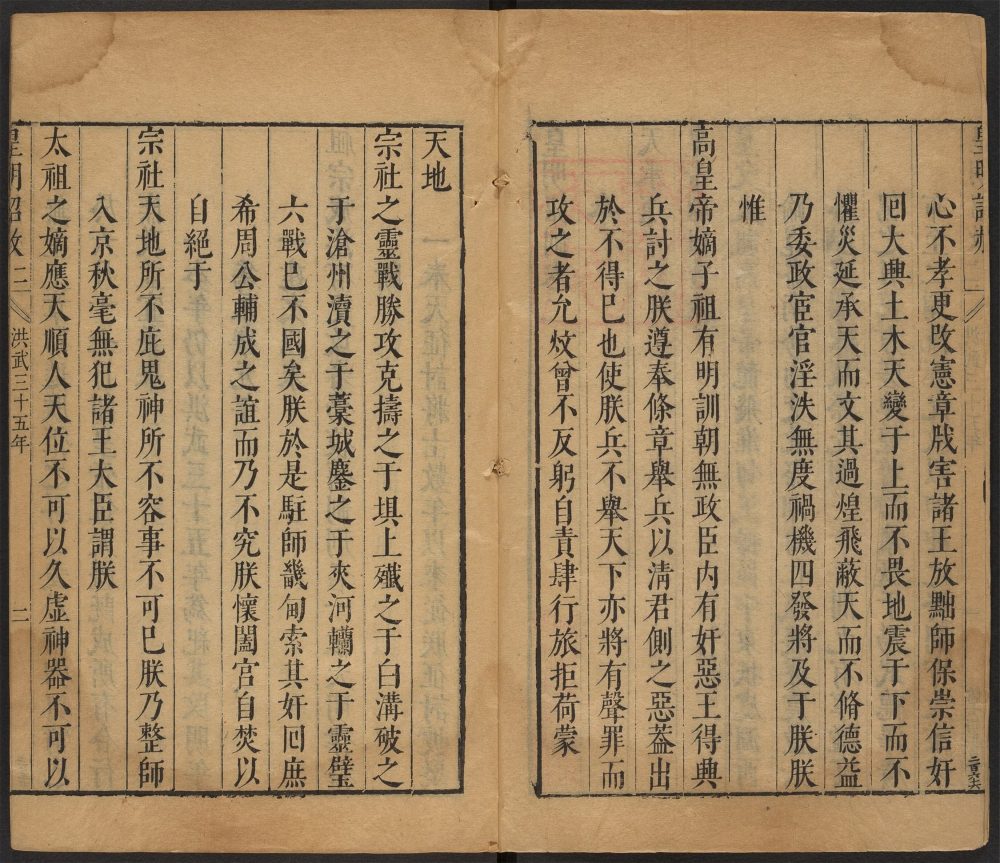 心不孝更改憲章戕害諸王放黜師保崇信奸
囘大興土木天變于上而不畏地震于下而不
懼災延承天而文其過煌飛蔽天而不脩德益
乃委政宦官淫泆無度禍機四發將及于朕朕
惟
高皇帝嫡子祖有明訓朝無政臣内有奸惡王得興
兵討之朕遵奉條章舉兵以清君側之惡葢出
於不得已也使朕兵不舉天下亦將有聲罪而
攻之者允炆曾不反躬自責肆行旅拒荷蒙
天地
宗社之靈戰勝攻克擣之于垻上殲之于白溝破之
于滄州潰之于藁城鏖之于夾河轥之于靈璧
六戰已不國矣朕於是駐師畿甸索其奸囘庶
希周公輔成之誼而乃不究朕懷闔宮自焚以
自絕于
宗社天地所不庇鬼神所不容事不可已朕乃整師
入京秋毫無犯諸王大臣謂朕
太祖之嫡應天順人天位不可以久虛神器不可以
皇明詔赦 二 洪武三十五年 二